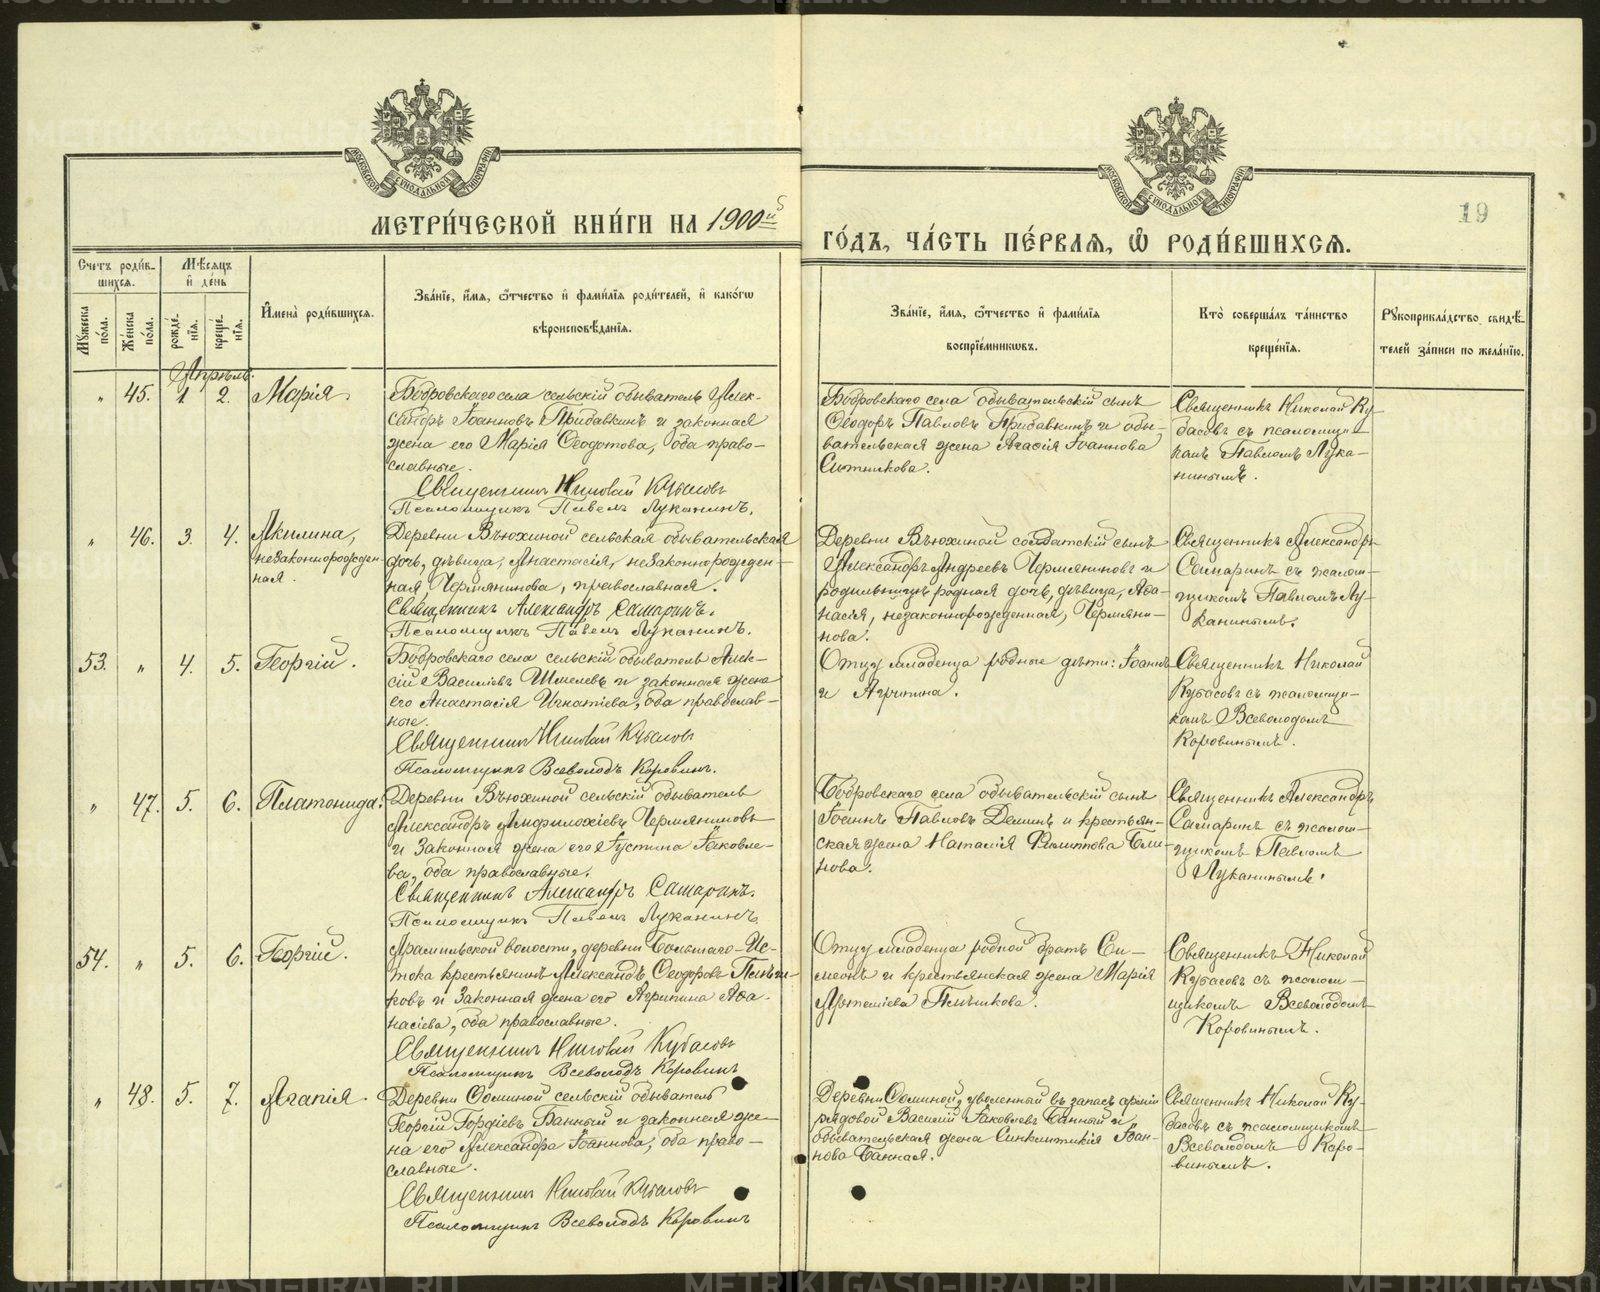 МЕТРИ́ЧЕСКОЙ КНИ́ГИ НА 1900й
ГО́ДЪ, ЧА́СТЬ ПЕ́РВАЯ, Ѽ РОДИ́ВШИХСЯ.
19
МОСКОВСКОЙ СѴНОДАЛЬНОЙ ТИПОГРАФІИ
МОСКОВСКОЙ СѴНОДАЛЬНОЙ ТИПОГРАФІИ
Счетъ роди́в-
шихся.
Мѣсяцъ
и҆ де́нь
Мꙋжеска по́ла.
Же́нска по́ла.
рожде́нїя.
креще́нїя.
И҆мена̀ роди́вшихся.
Зва́нїе, и҆́мя, ѻ҆́тчество и҆ фами́лїя роди́телей, и҆ како́гѡ
вѣроисповѣ́данїя.
Зва́нїе, и҆́мя, ѻ҆́тчество и҆ фами́лїя
воспрїе́мникѡвъ.
Кто̀ соверша́лъ та́инство
креще́нїя.
Рꙋкоприкла́дство свидѣ́-
телей за́писи по жела́нїю.
Апрѣль.
" 45. 1 2. Марія.
Бобровскаго села сельскій обыватель Алек-
сандръ Іоанновъ Придавкинъ и законная
жена его Марія Ѳеодотова, оба право-
славные.
Священникъ Николай Кубасовъ
Псаломщикъ Павелъ Луканинъ.
Бобровскаго села обывательскій сынъ
Ѳеодоръ Павловъ Придавкинъ и обы-
вательская жена Агафія Іоаннова
Ситникова.
Священникъ Николай Ку-
басовъ съ псаломщи-
комъ Павломъ Лука-
нинымъ.
" 46. 3. 4. Акилина,
незаконнорожден-
ная.
Деревни Вьюхиной сельская обывательская
дочь, дѣвица, Анастасія, незаконнорожден-
ная Чермянинова, православная.
Священникъ Александръ Самаринъ.
Псаломщикъ Павелъ Луканинъ.
Деревни Вьюхиной солдатскій сынъ
Александръ Андреевъ Чермяниновъ и
родильницы родная дочь, дѣвица, Аѳа-
насія, незаконнорожденная, Чермяни-
нова.
Священникъ Александръ
Самаринъ съ псалом-
щикомъ Павломъ Лу-
канинымъ.
53. " 4. 5. Георгій.
Бобровскаго села сельскій обыватель Алек-
сій Василіевъ Шмелевъ и законная жена
его Анастасія Игнатіева, оба православ-
ные.
Священникъ Николай Кубасовъ
Псаломщикъ Всеволодъ Коровинъ.
Отцу младенца родные дѣти: Іоаннъ
и Агрипина.
Священникъ Николай
Кубасовъ съ псаломщи-
комъ Всеволодомъ
Коровинымъ.
" 47. 5. 6. Платонида.
Деревни Вьюхиной сельскій обыватель
Александръ Амфилохіевъ Чермяниновъ
и законная жена его Іустина Іаковле-
ва, оба православные.
Священникъ Александръ Самаринъ.
Псаломщикъ Павелъ Луканинъ
Бобровскаго села обывательскій сынъ
Іоаннъ Павловъ Деминъ и крестьян-
ская жена Наталія Филиппова Бли-
нова.
Священникъ Александръ
Самаринъ съ псалом-
щикомъ Павломъ
Луканинымъ.
54. " 5. 6. Георгій.
Арамильской волости, деревни Большаго-Ис-
тока крестьянинъ Александръ Ѳеодоровъ
и законная жена его Агрипина Аѳа-
насіева, оба православные.
Священникъ Николай Кубасовъ
Псаломщикъ Всеволодъ Коровинъ
Отцу младенца родной братъ Си-
меонъ и крестьянская жена Марія
Артеміева
Священникъ Николай
Кубасовъ съ псалом-
щикомъ Всеволодомъ
Коровинымъ.
" 48. 5. 7. Агапія.
Деревни Ѳоминой сельскій обыватель
Георгій Гордіевъ Банный и законная же-
на его Александра Іоаннова, оба право-
славные.
Священникъ Николай Кубасовъ
Псаломщикъ Всеволодъ Коровинъ
Деревни Ѳоминой, уволенный въ запасъ арміи
рядовой Василій Іаковлевъ Банный и
обывательская жена Синклитикія Іоан-
нова Банная.
Священникъ Николай Ку-
басовъ съ псаломщикомъ
Всеволодомъ Коро-
винымъ.
METRIKI.GASO-URAL.RU